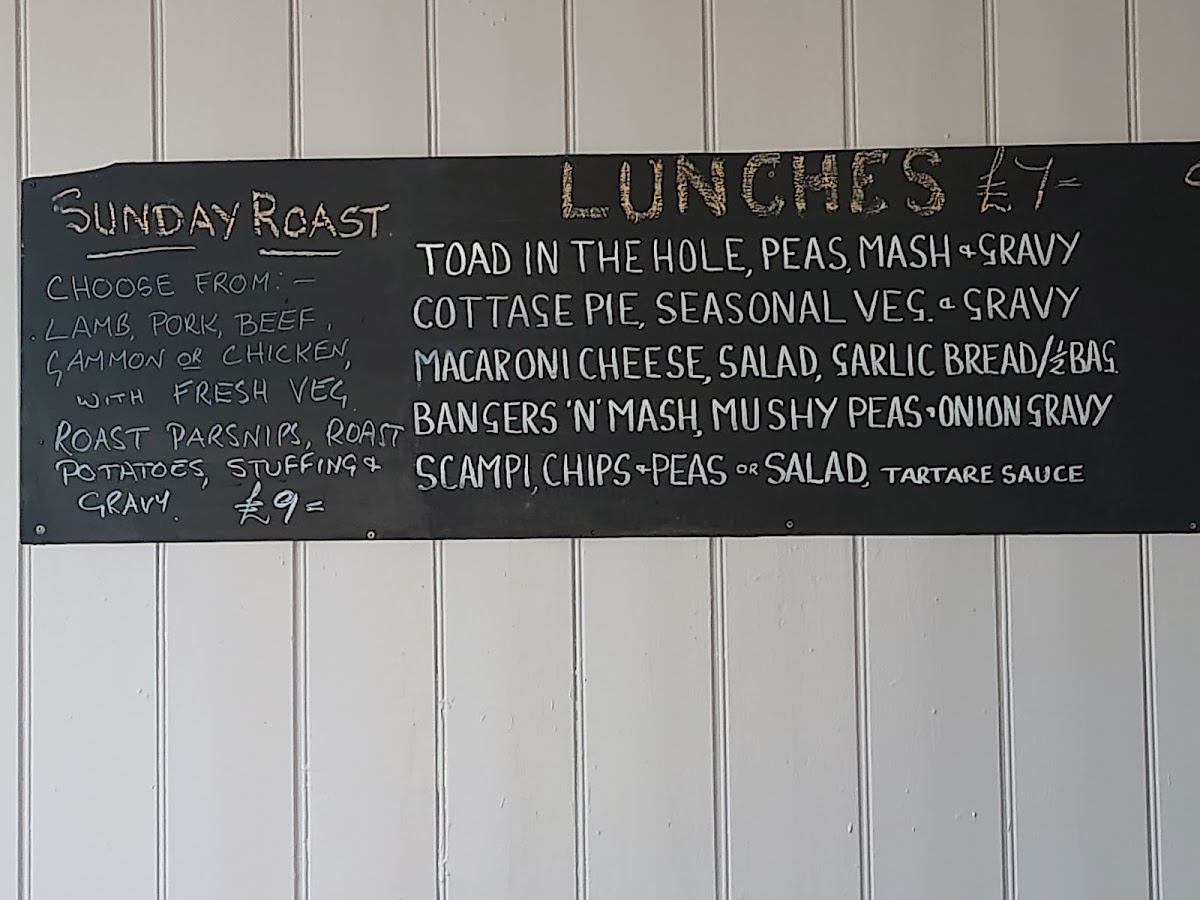 SUNDAY ROAST
CHOOSE FROM:-
LAMB, PORK, BEEF,
GAMMON OR CHICKEN,
WITH FRESH VEG
ROAST PARSNIPS, ROAST
POTATOES, STUFFING &
GRAVY. £9=
LUNCHES £7=
TOAD IN THE HOLE, PEAS, MASH & GRAVY
COTTAGE PIE, SEASONAL VEG. & GRAVY
MACARONI CHEESE, SALAD, GARLIC BREAD/½BAG
BANGERS 'N' MASH, MUSHY PEAS & ONION GRAVY
SCAMPI, CHIPS & PEAS OR SALAD, TARTARE SAUCE